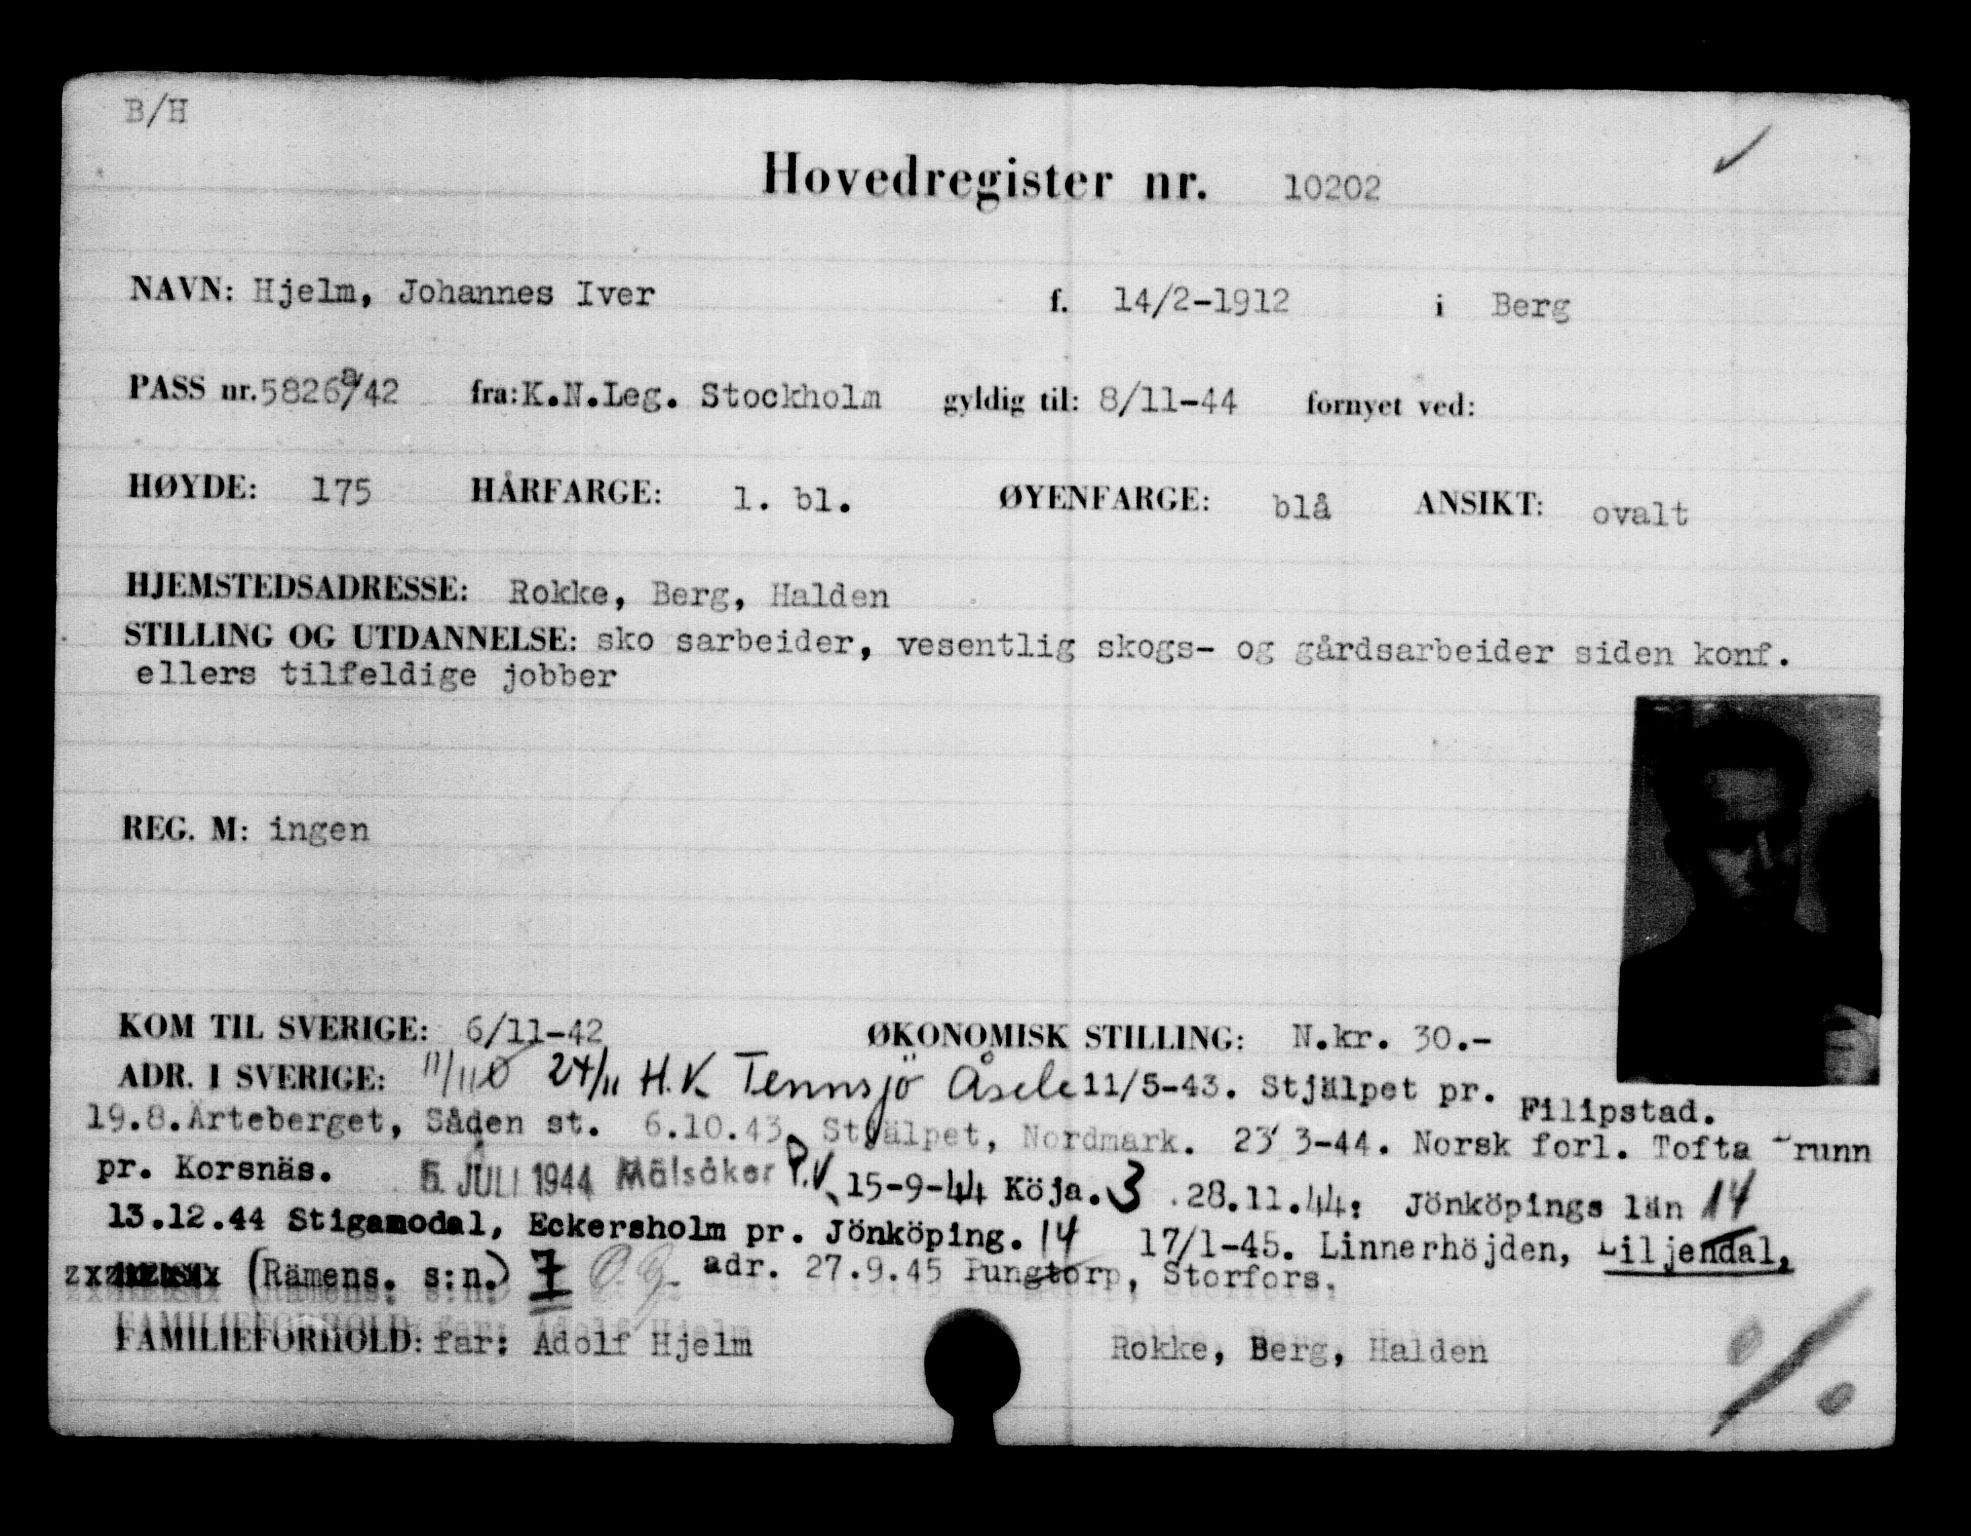 B/H
Hovedregister nr. 10202
NAVN: Hjelm, Johannes Iver f. 14/2-1912 i Berg
PASS nr. 5826a/42 fra: K.N.Leg. Stockholm gyldig til: 8/11-44 fornyet ved:
HØYDE: 175 HÅRFARGE: l. bl. ØYENFARGE: blå ANSIKT: ovalt
HJEMSTEDSADRESSE: Rokke, Berg, Halden
STILLING OG UTDANNELSE: sko sarbeider, vesentlig skogs- og gårdsarbeider siden konf.
ellers tilfeldige jobber
REG. M: ingen
KOM TIL SVERIGE: 6/11-42 ØKONOMISK STILLING: N.kr. 30.-
ADR. I SVERIGE: 11/11 Ø 24/11 H.K Tennsjö Åsele 11/5-43. Stjälpet pr. Filipstad.
19.8. Ärteberget, Såden st. 6.10.43. Stjälpet, Nordmark. 23 3-44. Norsk forl. Tofta Brunn
pr. Korsnäs. 5. JULI 1944 Mälsåker P.V. 15-9-44 Köja. 3 28.11.44: Jönköpings län 14
13.12.44 Stigamodal, Eckersholm pr. Jönköping. 14 17/1-45. Linnerhöjden, Liljendal,
(Rämens. s:n.) 7 adr. 27.9.45 Pungtorp, Storfors.
FAMILIEFORHOLD: far: Adolf Hjelm Rokke, Berg, Halden